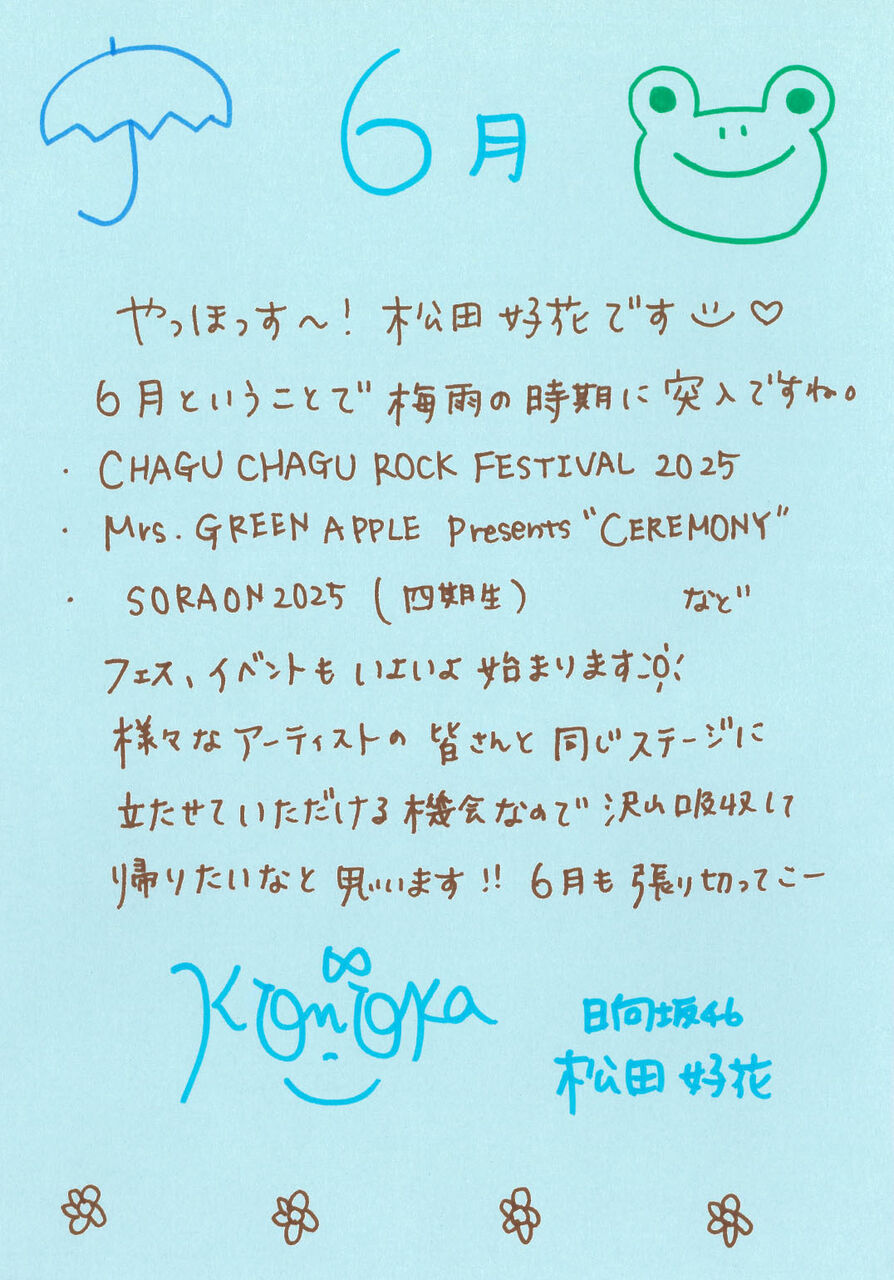 6月
やっほっす〜! 松田好花です
6月ということで梅雨の時期に突入ですね。
・ CHAGU CHAGU ROCK FESTIVAL 2025
・ Mrs. GREEN APPLE Presents "CEREMONY"
・ SORAON2025 (四期生) など
フェス、イベントもいよいよ始まります
様々なアーティストの皆さんと同じステージに
立たせていただける機会なので沢山吸収して
帰りたいなと思います!! 6月も張り切ってこー
Konoka
日向坂46
松田好花